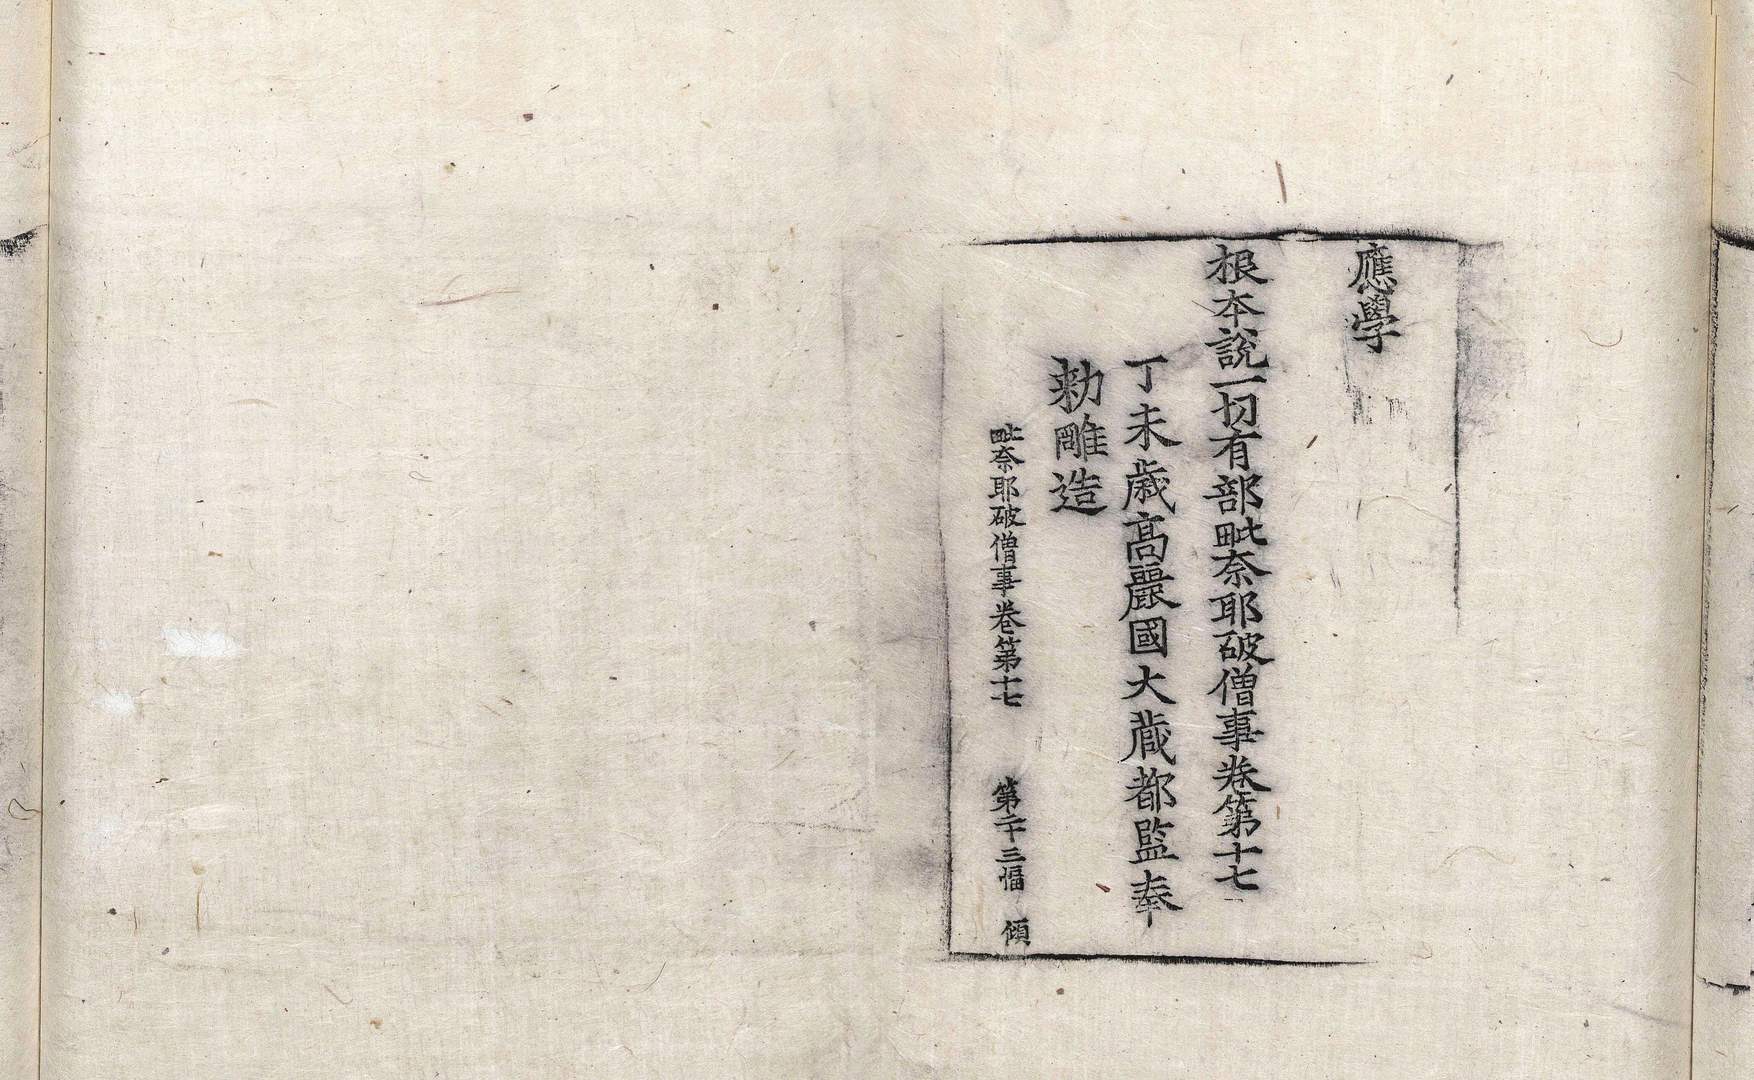 應學
根本說一切有部毗奈耶破僧事卷第十七
丁未歲高麗國大藏都監奉
勑雕造
毗奈耶破僧事卷第十七　第二十三幅　傾